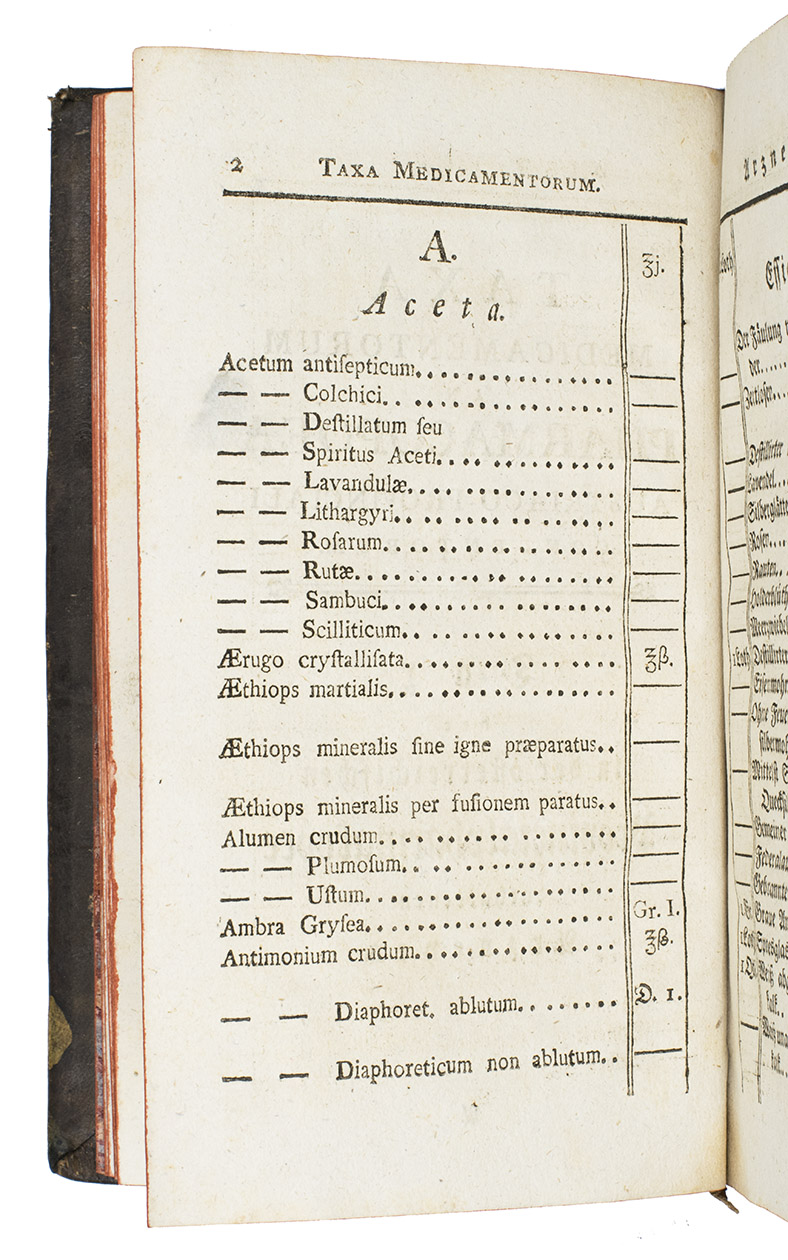 2 TAXA MEDICAMENTORUM.
A.
Aceta.
ʒj.
Acetum antiſepticum. —
— — Colchici. —
— — Deſtillatum ſeu
— — Spiritus Aceti. —
— — Lavandulæ. —
— — Lithargyri. —
— — Roſarum. —
— — Rutæ. —
— — Sambuci. —
— — Scilliticum. —
Ærugo cryſtalliſata. ʒß.
Æthiops martialis. —
Æthiops mineralis ſine igne præparatus. —
Æthiops mineralis per fuſionem paratus. —
Alumen crudum. —
— — Plumoſum. —
— — Uſtum. —
Ambra Gryſea. Gr. I.
Antimonium crudum. ʒß.
— — Diaphoret. ablutum. Ɔ. 1.
— — Diaphoreticum non ablutum. —
Arzne
Loth
Eſſi
Der Fäulung
der
Zeitloſen
Deſtillirter
Lavendel
Silberglätte
Roſen
Rauten
Meerzwiebel
1 Loth Deſtillirter
Eiſenmohr
Ohne Feue
ſilbermo
Mittelſt S
Queckſil
Gemeiner
Federala
Gebrannte
Graue
Spießglas